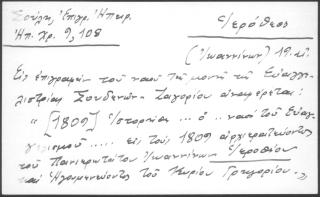 Σούλη, Επιγρ. Ηπειρ.
Ηπ. Χρ. 9, 108
Ιερόθεος
(Ιωαννίνων) 19. αι.
Εις επιγραφήν του ναού της μονής της Ευαγγε-
λιστρίας Σουδενών-Ζαγορίου αναφέρεται:
"[1809] Ιστορήθη ... ό .. ναός του Ευαγ-
γελισμού ..... εις τους 1809 αρχιερατεύοντος
του Πανιερωτάτου Ιωαννίνων Ιεροθέου
και Ηγουμενεύοντος του Κυρίου Γρηγορίου."